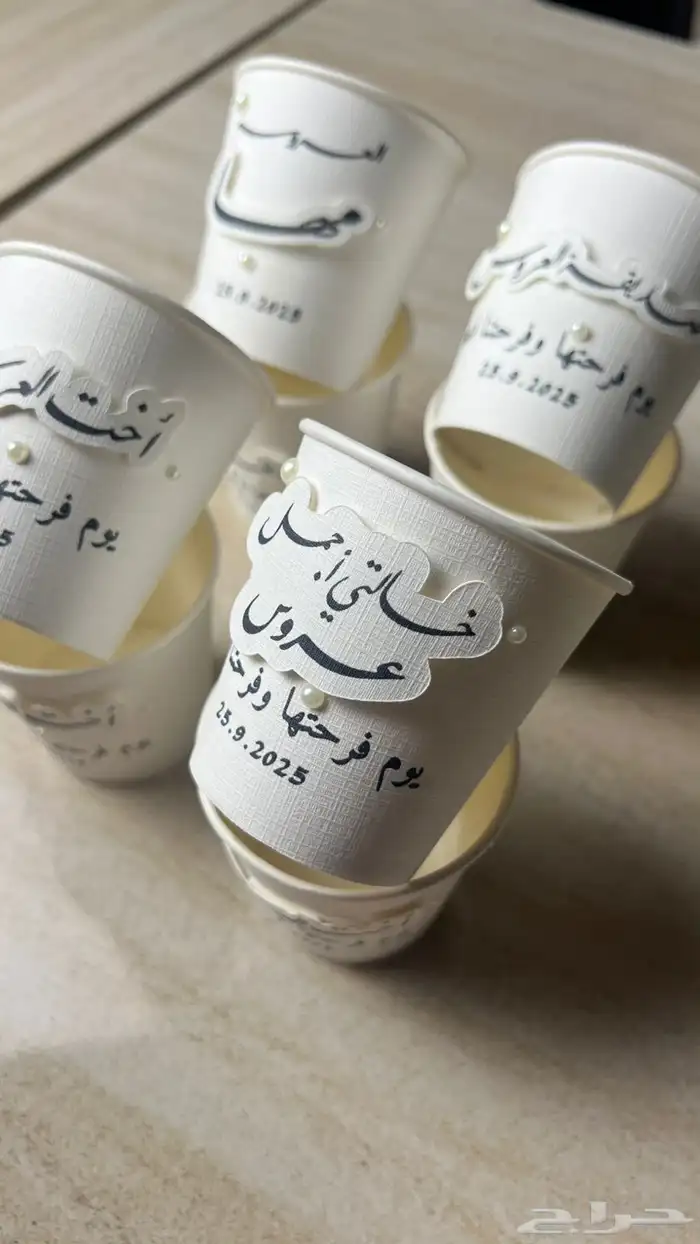 العروسة
مها
25.9.2025
صديقة العروسة
يوم فرحتها وفرحتنا
25.9.2025
أخت
يوم فرحتها
5
خالتي أجمل
عروس
يوم فرحتها وفرحتنا
25.9.2025
أخت
يوم
حراج